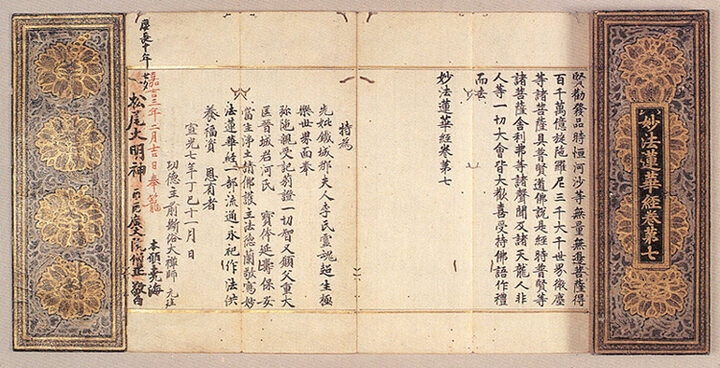 妙法蓮華經卷第七
賢勸發品時恒河沙等無量無邊菩薩得
百千萬億旋陁羅尼三千大千世界微塵
等諸菩薩具普賢道佛說是經時普賢等
諸菩薩舍利弗等諸聲聞及諸天龍人非
人等一切大會皆大歡喜受持佛語作禮
而去
妙法蓮華經卷第七
特為
先妣鐵城郡夫人李氏靈魂超生極
樂世界面奉
弥陁親受記莂證一切智又願父重大
匡晉城君河氏 寶体延壽保安
當生淨土諸佛護主法德蘭敬寫妙
法蓮華經一部流通永祀作法供
養福資 恩有者
宣光七年丁巳十一月日
功德主前斷俗大禪師
本願堯海
三年二月吉日奉籠
松尾大明神
慶長十年